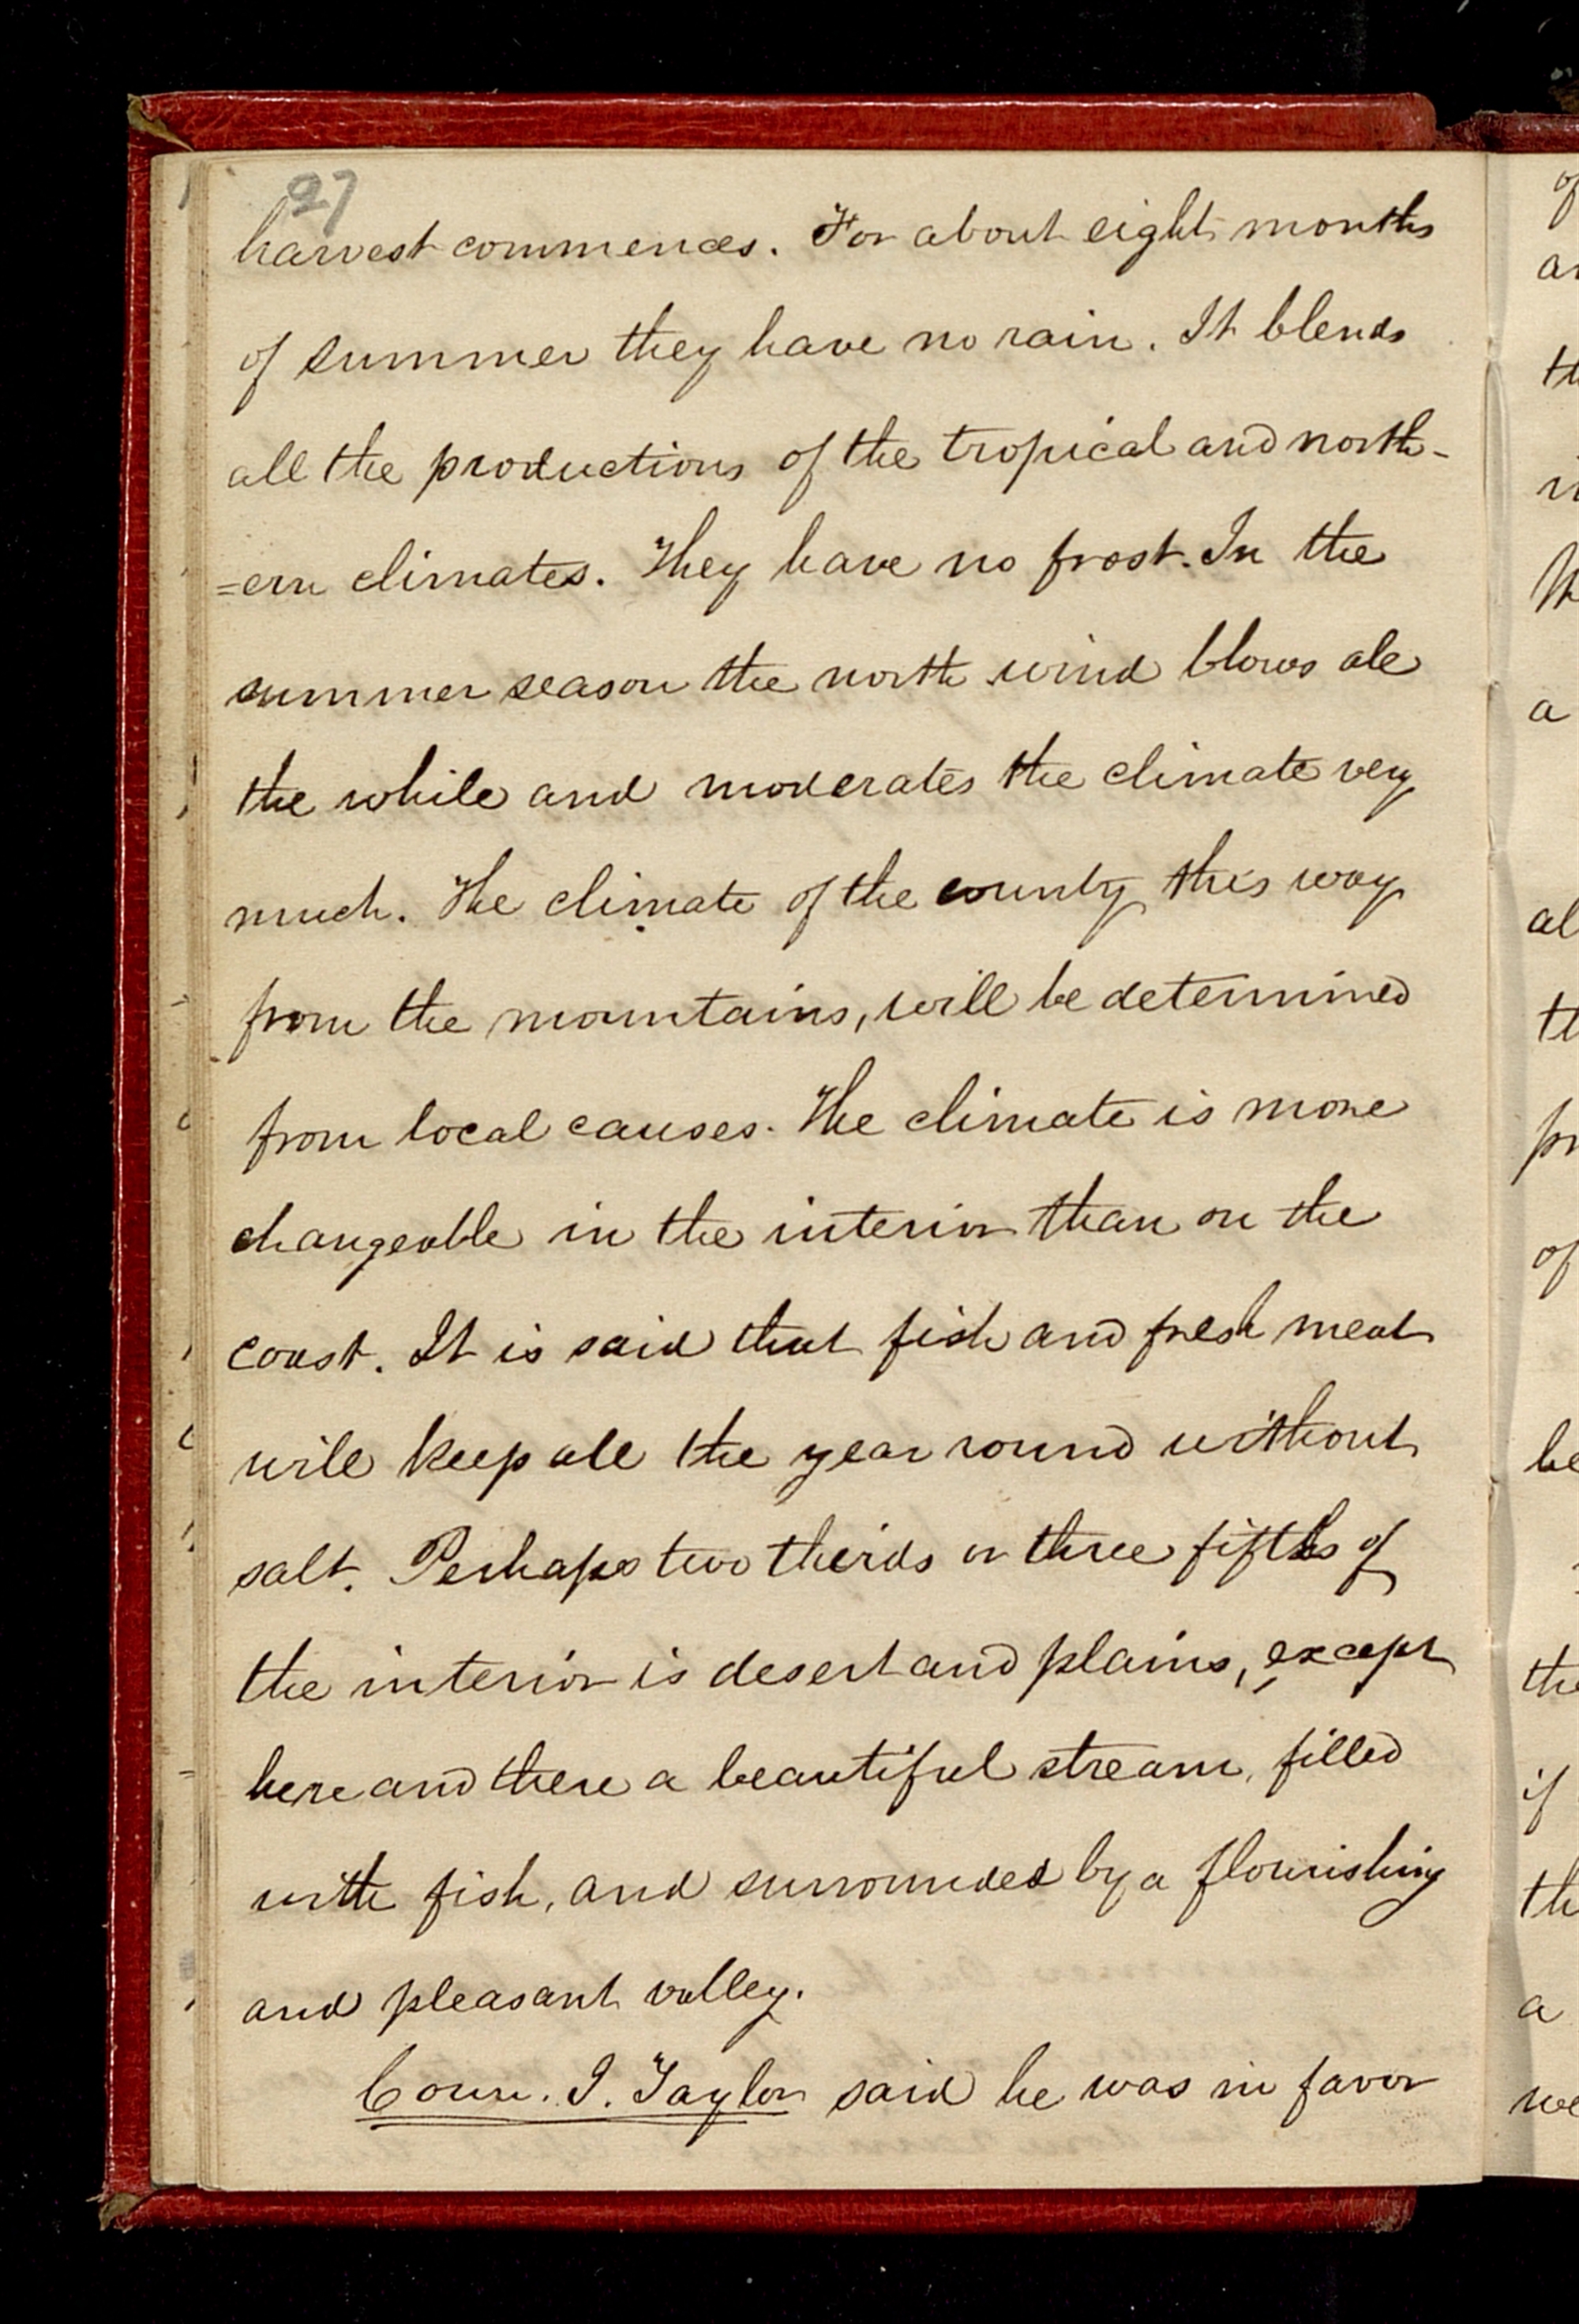 27
harvest commences. For about eight months
of summer they have no rain. It blends
all the productions of the tropical and north-
=ern climates. They have no frost. In the
summer season the north wind blows all
the while and moderates the climate very
much. The climate of the county this way
from the mountains, will be determined
from local causes. The climate is more
changeable in the interior than on the
coast. It is said that fish and fresh meat
will keep all the year round without
salt. Perhaps two thirds or three fifths of
the interior is desert and plains, except
here and there a beautiful stream, filled
with fish, and surrounded by a flourishing
and pleasant valley.
Coun. J. Taylor said he was in favor